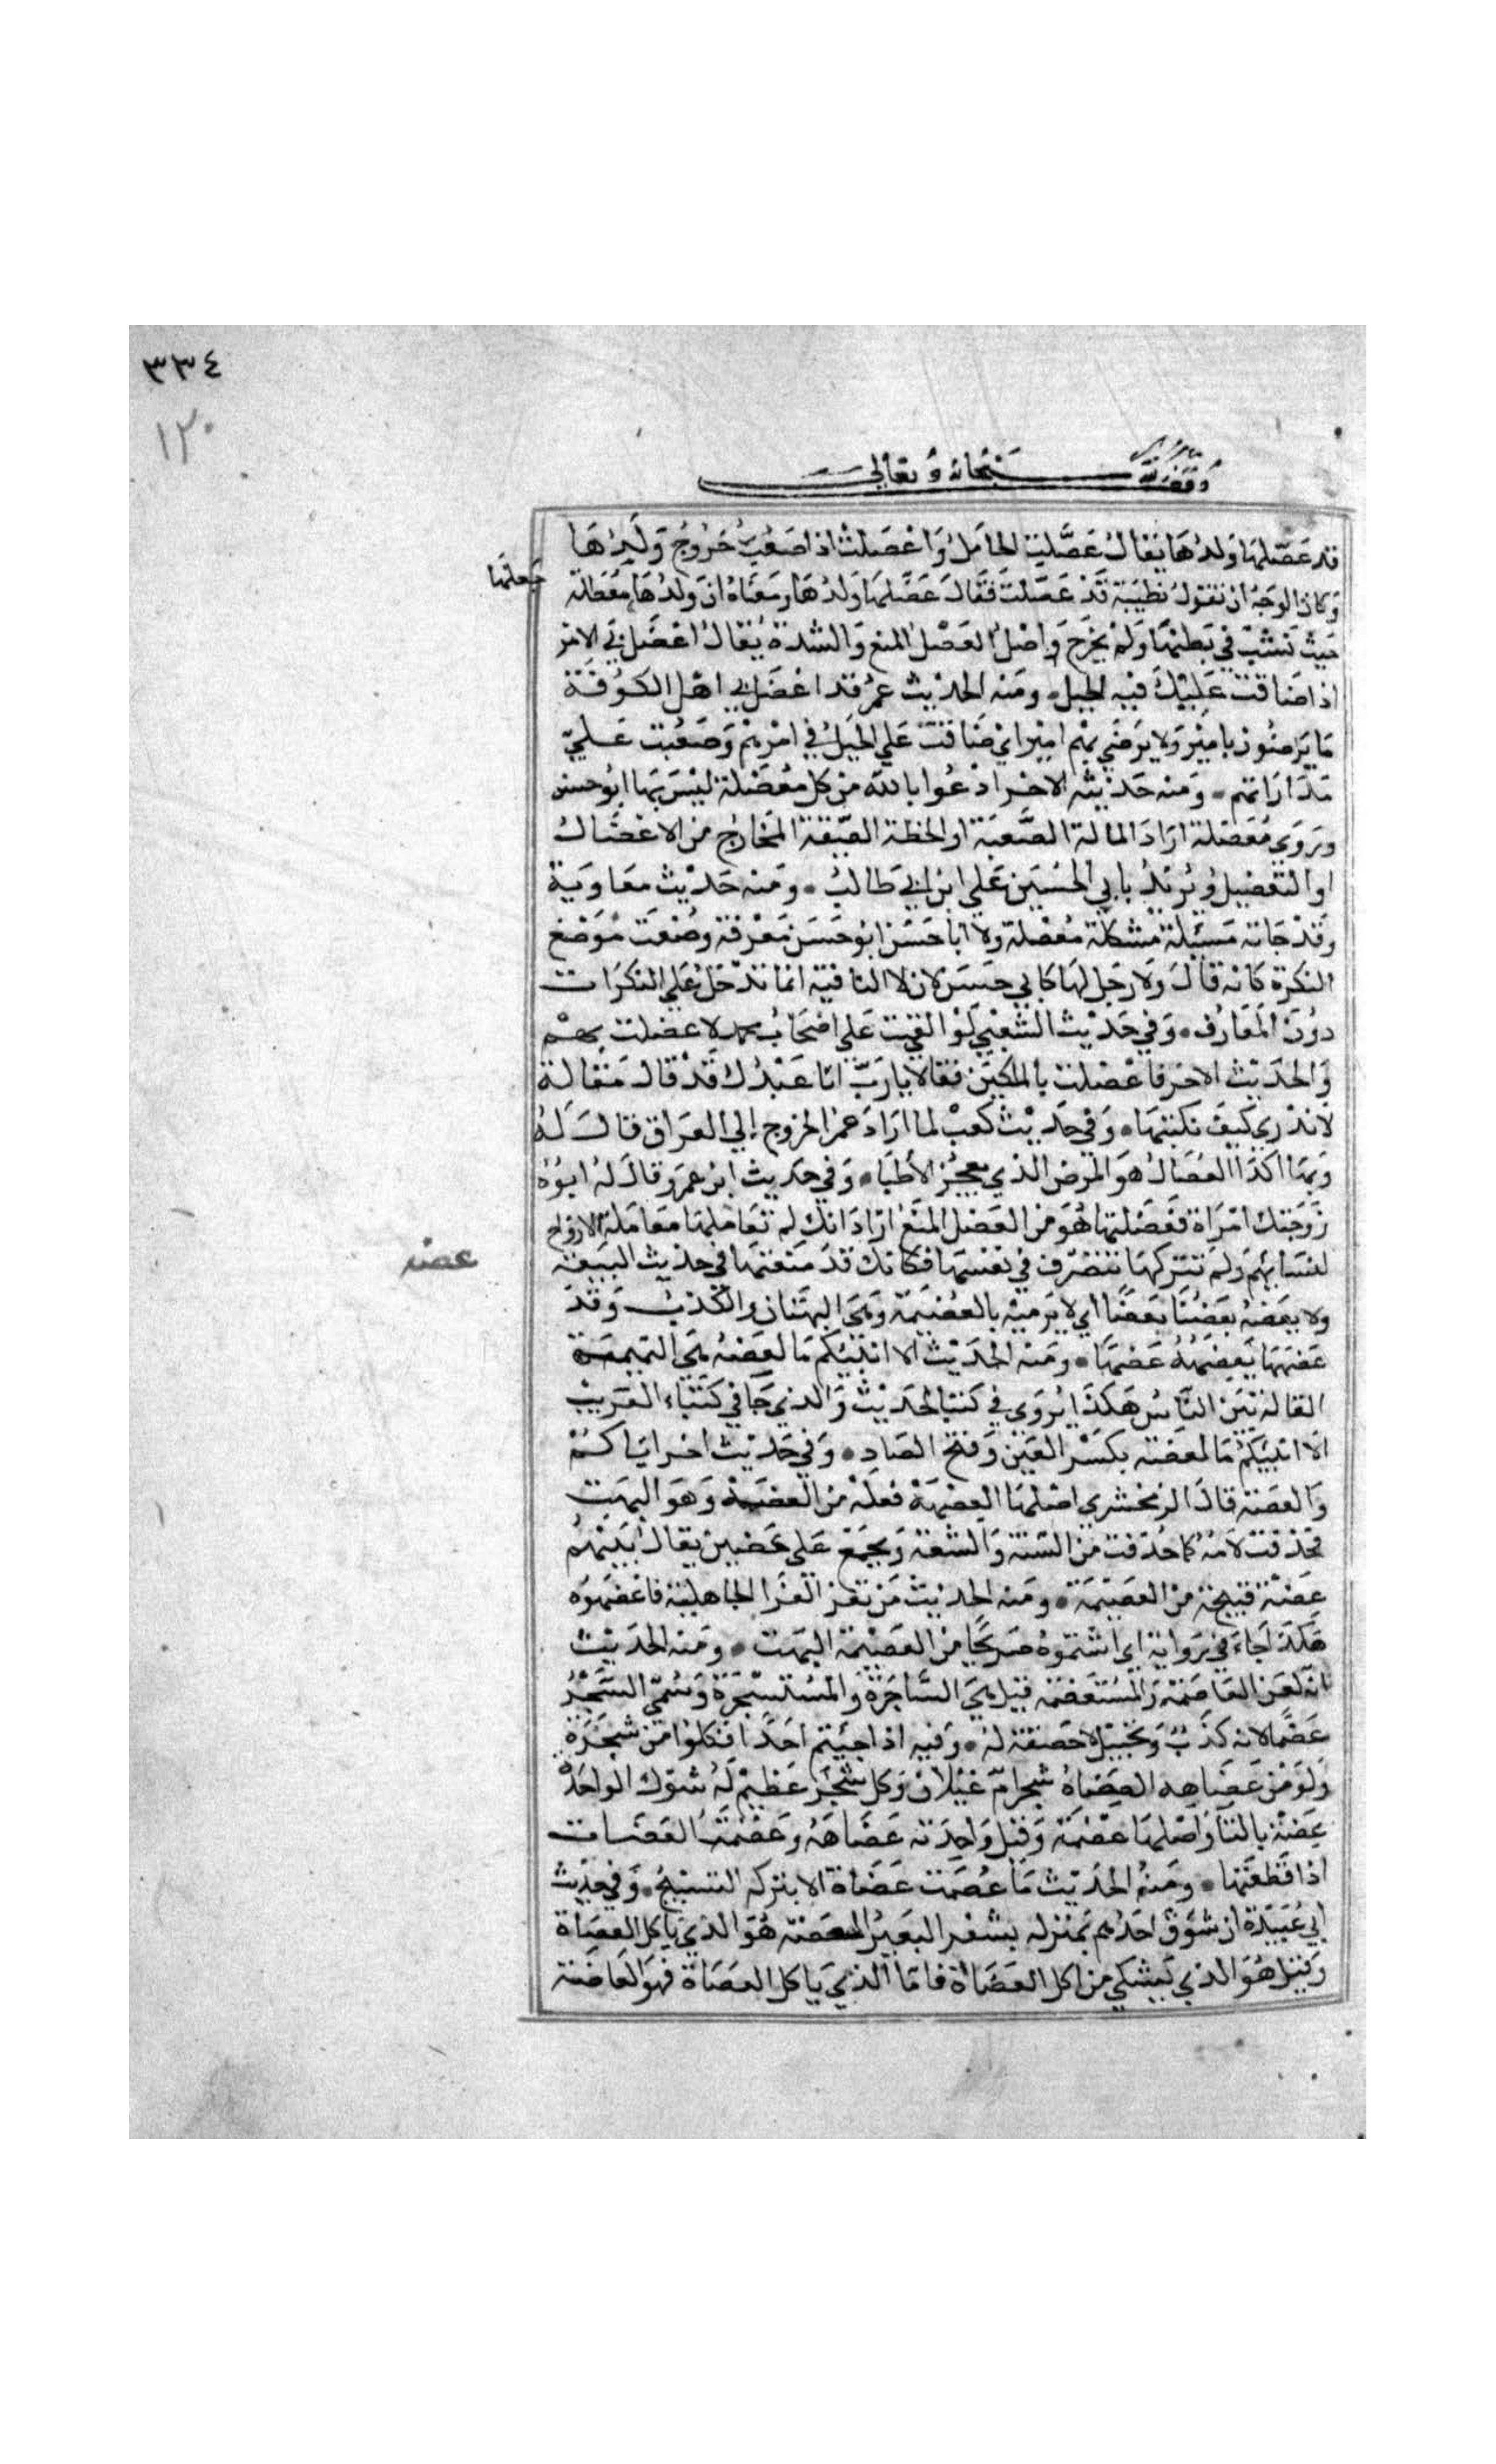 ٣٣٤
١٢٠
وقف لله سبحانه وتعالى
قد عضلها ولدها يقال عضلت الحامل واعضلت اذا صعب خروج ولدها
وكان الوجه ان تقول بظبية قد عضلت فقال عضلها ولدها ومعناه ان ولدها معضلة
جعلها
حيث نشب في بطنها ولم يخرج واصل العضل المنع والشدة يقال اعضل بي الامر
اذا ضاقت عليك فيه الحيل ومنه الحديث عمر قد اعضل بي اهل الكوفة
ما يرضون بامير ولا يرضي بهم امير اي ضاقت علي الحيل في امرهم وصعبت علي
مداراتهم ومنه حديثه الاخر ادعوا بالله من كل معضلة ليس بها ابو حسن
ويروي معضلة اراد المالة الصعبة او الخطة الضيقة المخارج من الاعضال
او التعضيل ويريد بابي الحسين علي ابن ابي طالب ومنه حديث معاوية
وقد جاته مسئلة مشكلة معضلة ولا ابا حسن ابو حسن معرفة وضعت موضع
النكرة كانه قال ولا رجل لها كابي حسن لان لا النافية انما تدخل علي النكرات
دون المعارف وفي حديث الشعبي لو القيت علي اصحاب محمد لاعضلت بهم
والحديث الاخر فاعضلت بالملكين فقالا يا رب انا عبدك قد قال مقالة
لا ندري كيف نكتبها وفي حديث كعب لما اراد عمر الخروج إلي العراق قال له
وبها الدا العضال هو المرض الذي يعجز الاطبا وفي حديث ابن عمر وقال له ابوه
زوجتك امراة فعضلتها هو من العضل المنع اراد انك لم تعاملها معاملة الازواج
لنسائهم ولم تتركها تتصرف في نفسها فكانك قد منعتها في حديث البيعة
عضه
ولا يعضه بعضنا بعضا اي لا يرميه بالعضيهة وهي البهتان والكذب وقد
عضهها يعضهه عضها ومنه الحديث الا انبئكم ما لعضه هي النميمة
القالة بين الناس هكذا يروي في كتب الحديث والذي جا في كتباء الغريب
الا انبئكم ما لعضه بكسر العين وفتح الضاد وفي حديث اخر اياكم
والعضة قال الزمخشري اصلها العضهة فعلة من العضه وهو البهت
فحذفت لامه كما حذفت من السنة والشفة ويجمع علي عضين يقال بينهم
عضة قبيحة من العضيهة ومنه الحديث من تعزا بعزا الجاهلية فاعضهوه
هكذا جاء في رواية اي اشتموه صريحا من العضيهة البهت ومنه الحديث
انه لعن العاضهة والمستعضهة قيل هي الساحرة والمستسحرة وسمي السحر
عضها لانه كذب وتخييل لا حقيقة له وفيه اذا جئيتم احدا فكلوا من شجره
ولو من عضاهه العضاه شجر ام غيلان وكل شجر عظيم له شوك الواحدة
عضة بالتا واصلها عضهة وقيل واحدته عضاهة وعضهت العضات
اذا قطعتها ومنه الحديث ما عضهت عضاة الا بتركه التسبيح وفي حديث
ابي عبيدة ان شوق احدهم بمنزله بشفر البعير العضه هو الذي ياكل العضاة
وقيل هو الذي يشكي من اكل العضاة فاما الذي ياكل العضاة فهو العاضه